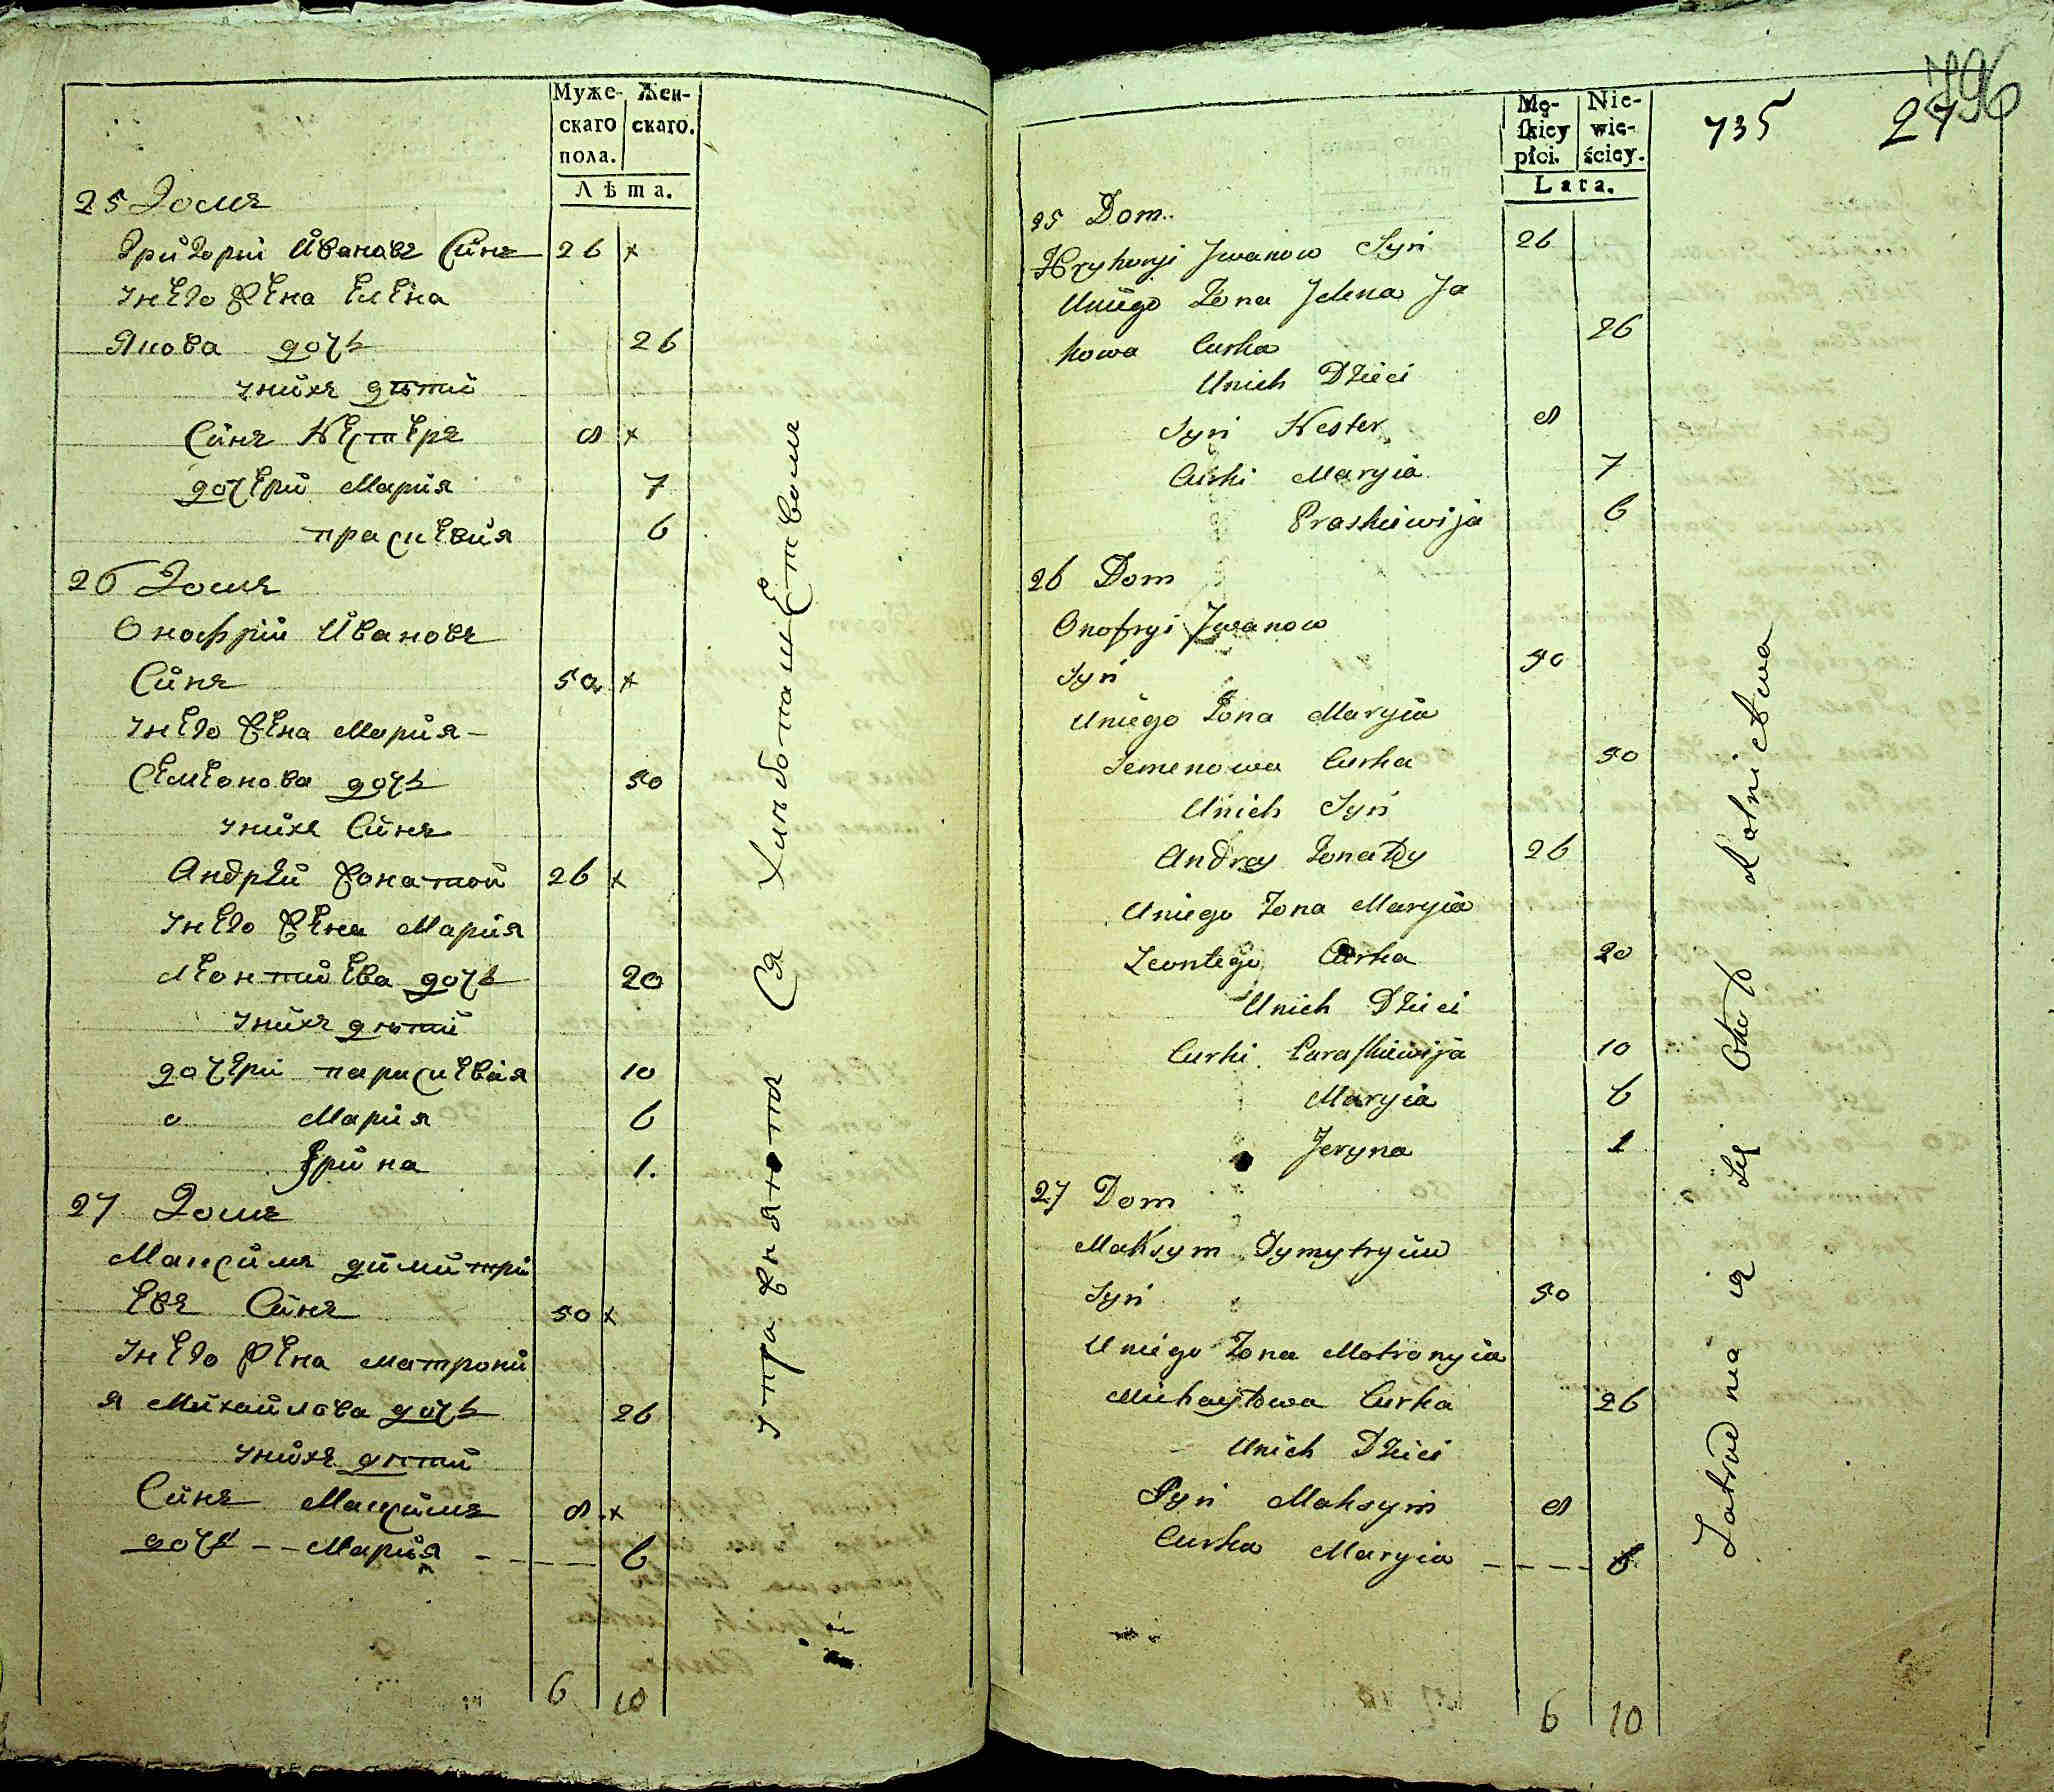 Муже- Жен-
скаго скаго.
пола.
Лѣта.
25 Домъ
Григорiй Ивановъ Синъ 26 x
Унего Жена Елена
Якова дочь 26
Унихъ дѣти
Синъ Нестеръ 8 x
дочери Мария 7
праскевия 6
26 Домъ
Онофрiй Ивановъ
Синъ 50 x
Унего Жена Мария
Семенова дочь 50
Унихъ Синъ
Андрей Жонатой 26 x
Унего Жена Мария
Леонтиева дочь 20
Унихъ дѣти
дочери параскевiя 10
Мария 6
Ирина 1.
27 Домъ
Максимъ димитри
евъ Синъ 50 x
Унего Жена матрони
я Михайлова дочь 26
Унихъ дѣти
Синъ Максимъ 8 x
дочь -- Мария ---- 6
6 10
Упражняются Хлѣбопашеством
796
Mę- Nie-
ſkiey wie-
płci. ściey.
Lata.
735 27
25 Dom
Hryhoryi Jwanow Syn 26
Uniego Żona Jelena Ja
kowa Curka 26
Unich Dzieci
Syn Nester 8
Curki Maryia 7
Praskiewija 6
26 Dom
Onofryi Jwanow
Syn 50
Uniego Żona Maryia
Semenowa Curka 50
Unich Syn
Andrey Żonaty 26
Uniego Żona Maryia
Leontego Curka 20
Unich Dzieci
Curki Paraſkiewija 10
Maryia 6
Jeryna 1
27 Dom
Maksym Dymytryiew
Syn 50
Uniego Żona Motronyia
Michayłowa Curka 26
Unich Dzieci
Syn Maksym 8
Curka Maryia ---- 6
6 10
Zatrudnia ią Się Około Rolnictwa